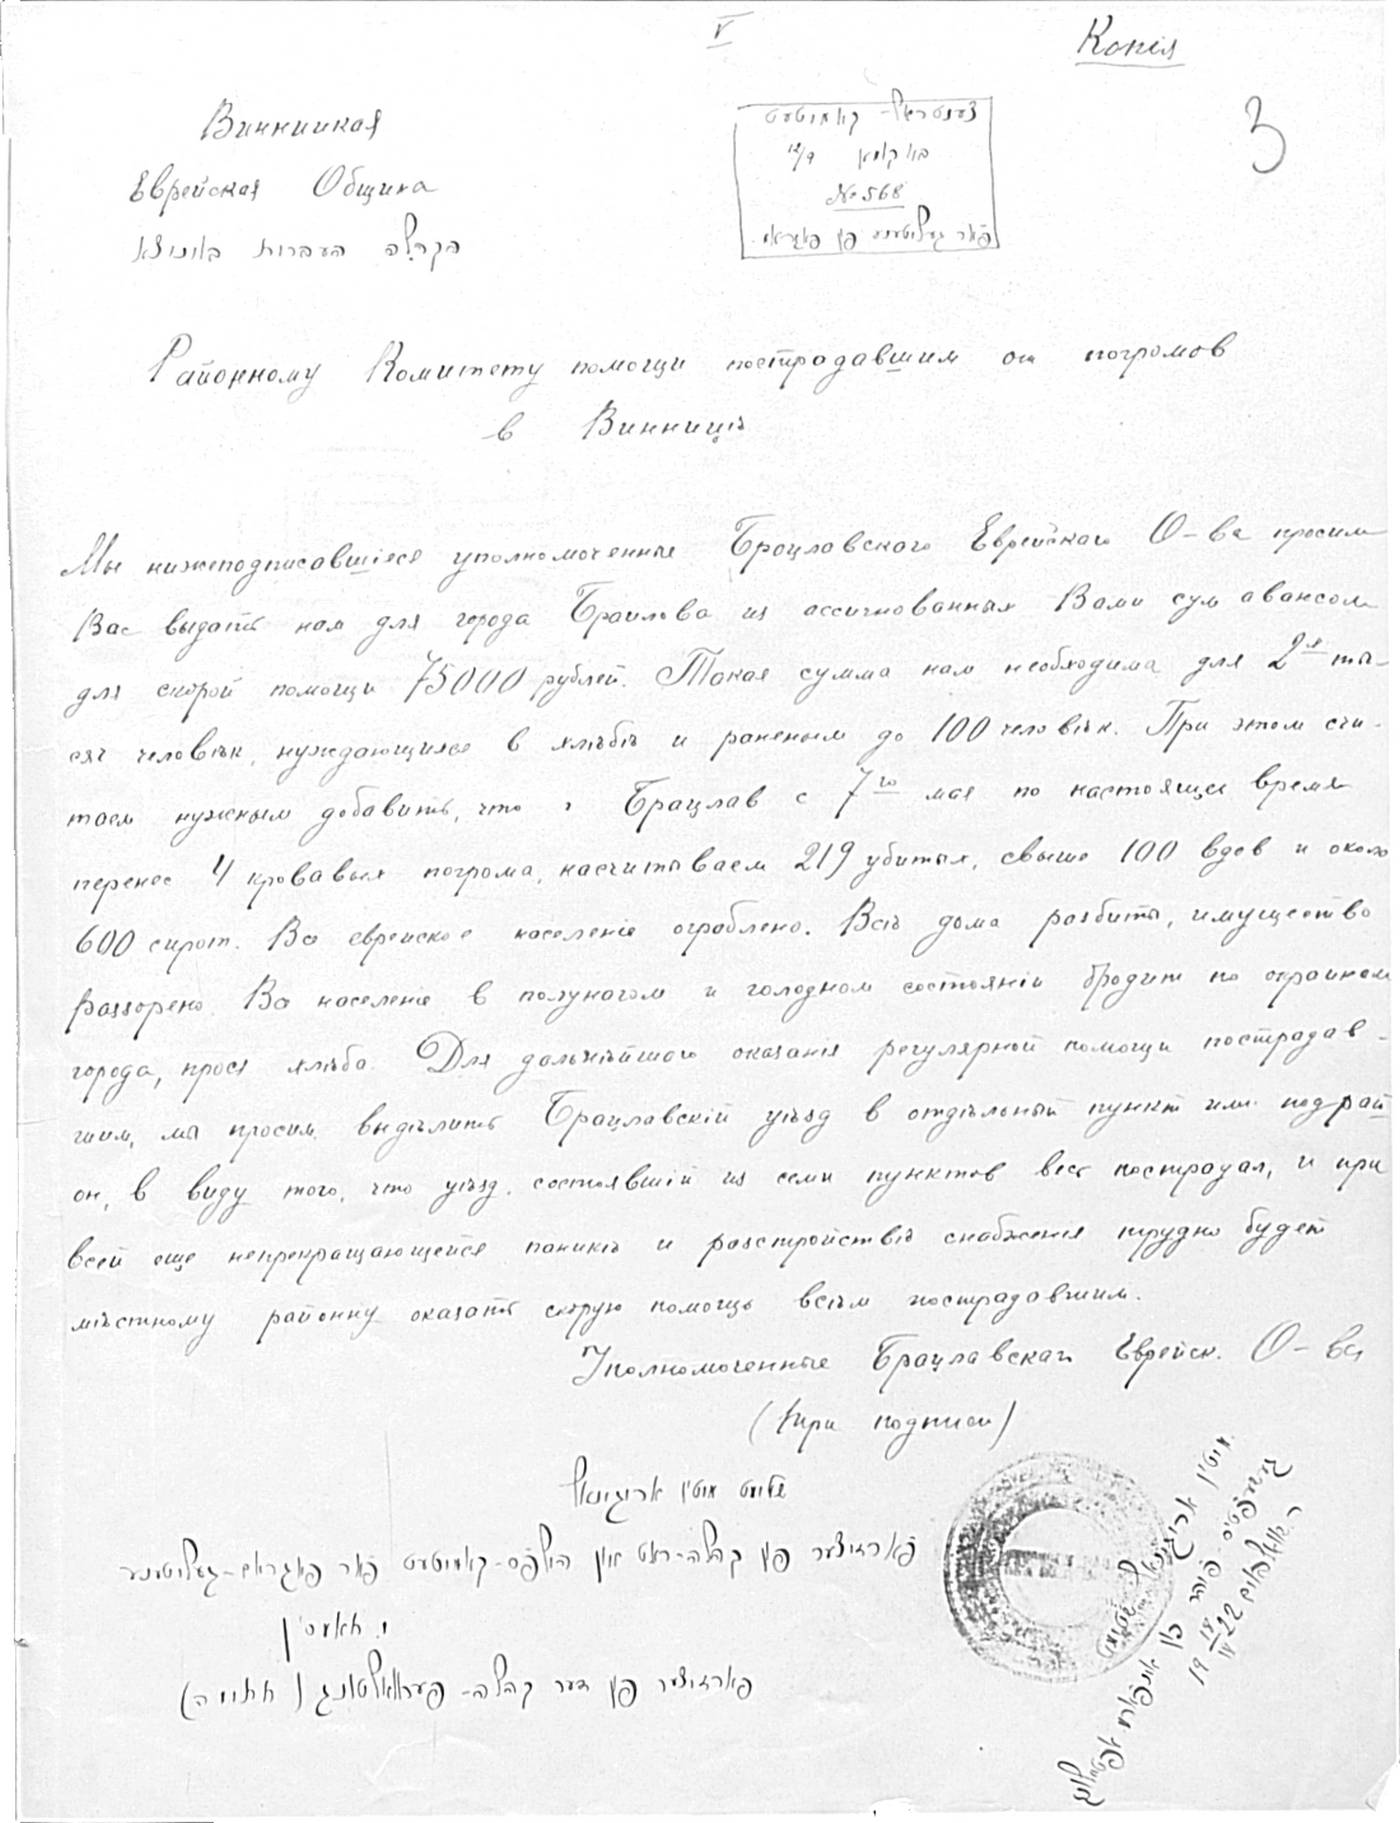 V
Копія
3
Винницкая
Еврейская Община
הקהלה העברית בוויניצא
צענטראל-קאמיטעט
12/9
№ 568
פאר געליטענע פון פאגראמ
Районному Комитету помощи пострадавшим от погромов
в Винницѣ
Мы нижеподписавшіеся уполномоченные Брацлавского Еврейскаго О-ва просим
Вас выдать нам для города Браилова из ассигнованных Вами сум авансом
для скорой помощи 75000 рублей. Такая сумма нам необходима для 2х ты-
сяч человѣк, нуждающихся в хлѣбѣ и раненым до 100 человѣк. При этом счи-
таем нужным добавить, что г Брацлав с 7го мая по настоящее время
перенес 4 кровавых погрома, насчитываем 219 убитых, свыше 100 вдов и около
600 сирот. Все еврейское населеніе ограблено. Всѣ дома разбиты, имущество
раззорено. Все населеніе в полунагом и голодном состояніи бродит по окраинам
города, прося хлѣба. Для дальнѣйшаго оказанія регулярной помощи пострадав-
шим, мы просим выдѣлить Брацлавскій уѣзд в отдѣльный пункт или подрай
он, в виду того, что уѣзд, состоявшій из семи пунктов весь пострадал, и при
всей еще непрекращающейся паникѣ и разстройствѣ снабженія трудно будет
мѣстному районну оказать скорую помощь всѣм пострадавшим.
Уполномоченные Брацлавскаго Еврейск. О-ва
(три подписи)
שטימט מיטן אריגינאל
פארזיצער פון קהלה-ראט און הילפס-קאמיטעט פאר פאגראם-געליטענע
פארזיצער פון דער קהלה-פערוואלטונג (חתימה)
מיטן אריגינאל שטימט
געשעפטס פירער פון
19 18/IV 22